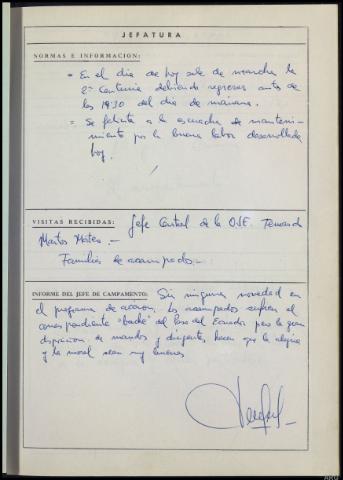 JEFATURA
NORMAS E INFORMACION:
= En el día de hoy sale de marcha la
2ª Centuria debiendo regresar antes de
las 1930 del día de mañana.
= Se felicita a la escuadra de manteni-
miento por la buena labor desarrollada
hoy.
VISITAS RECIBIDAS: Jefe Central de la OJE. Fernando
Martos Mateo.—
Familias de acampados—
INFORME DEL JEFE DE CAMPAMENTO: Sin ninguna novedad en
el programa de acción, los acampados sufren el
correspondiente "bache" del Paso del Ecuador pero la gran
disposición de mandos y dirigentes, hacen que la alegría
y la moral sean muy buenas